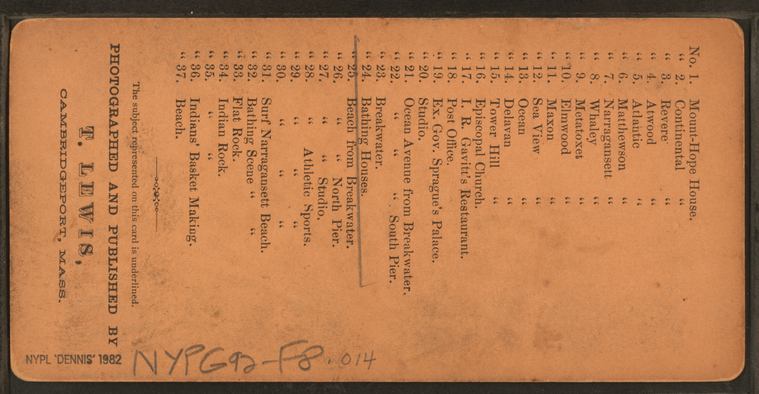 No. 1. Mount-Hope House.
“ 2. Continental “
“ 3. Revere “
“ 4. Atwood “
“ 5. Atlantic “
“ 6. Matthewson “
“ 7. Narragansett “
“ 8. Whaley “
“ 9. Metatoxet “
“ 10. Elmwood “
“ 11. Maxon “
“ 12. Sea View “
“ 13. Ocean “
“ 14. Delavan “
“ 15. Tower Hill “
“ 16. Episcopal Church.
“ 17. I. R. Gavitt's Restaurant.
“ 18. Post Office.
“ 19. Ex. Gov. Sprague's Palace.
“ 20. Studio.
“ 21. Ocean Avenue from Breakwater.
“ 22. “ “ “ South Pier.
“ 23. Breakwater.
“ 24. Bathing Houses.
“ 25. Beach from Breakwater.
“ 26. “ “ North Pier.
“ 27. “ “ Studio.
“ 28. “ Athletic Sports.
“ 29. “ “
“ 30. “ “ “
“ 31. Surf Narragansett Beach.
“ 32. Bathing Scene “ “
“ 33. Flat Rock.
“ 34. Indian Rock.
“ 35. “ “
“ 36. Indians' Basket Making.
“ 37. Beach.
The subject represented on this card is underlined.
PHOTOGRAPHED AND PUBLISHED BY
T. LEWIS,
CAMBRIDGEPORT, MASS.
NYPL 'DENNIS' 1982
NYPG92-F8.014